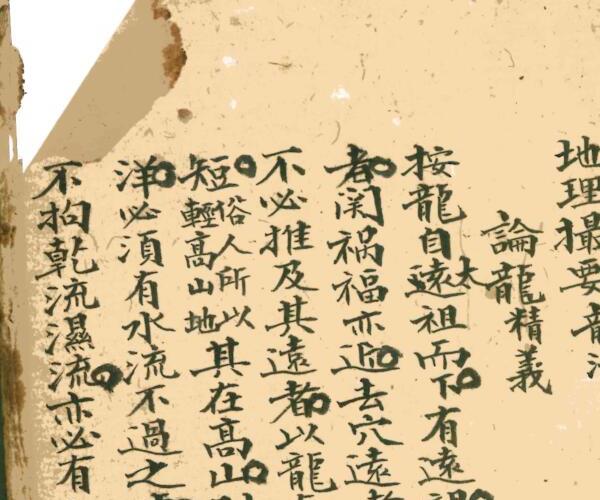 地理撮要龍法
論龍精義
按龍自遠太祖而下有遠
者関禍福亦近去穴遠
不必推及其遠者以龍
短俗人所以輕高山地其在高山
洋必須有水流不過之
不拘乾流濕流亦必有